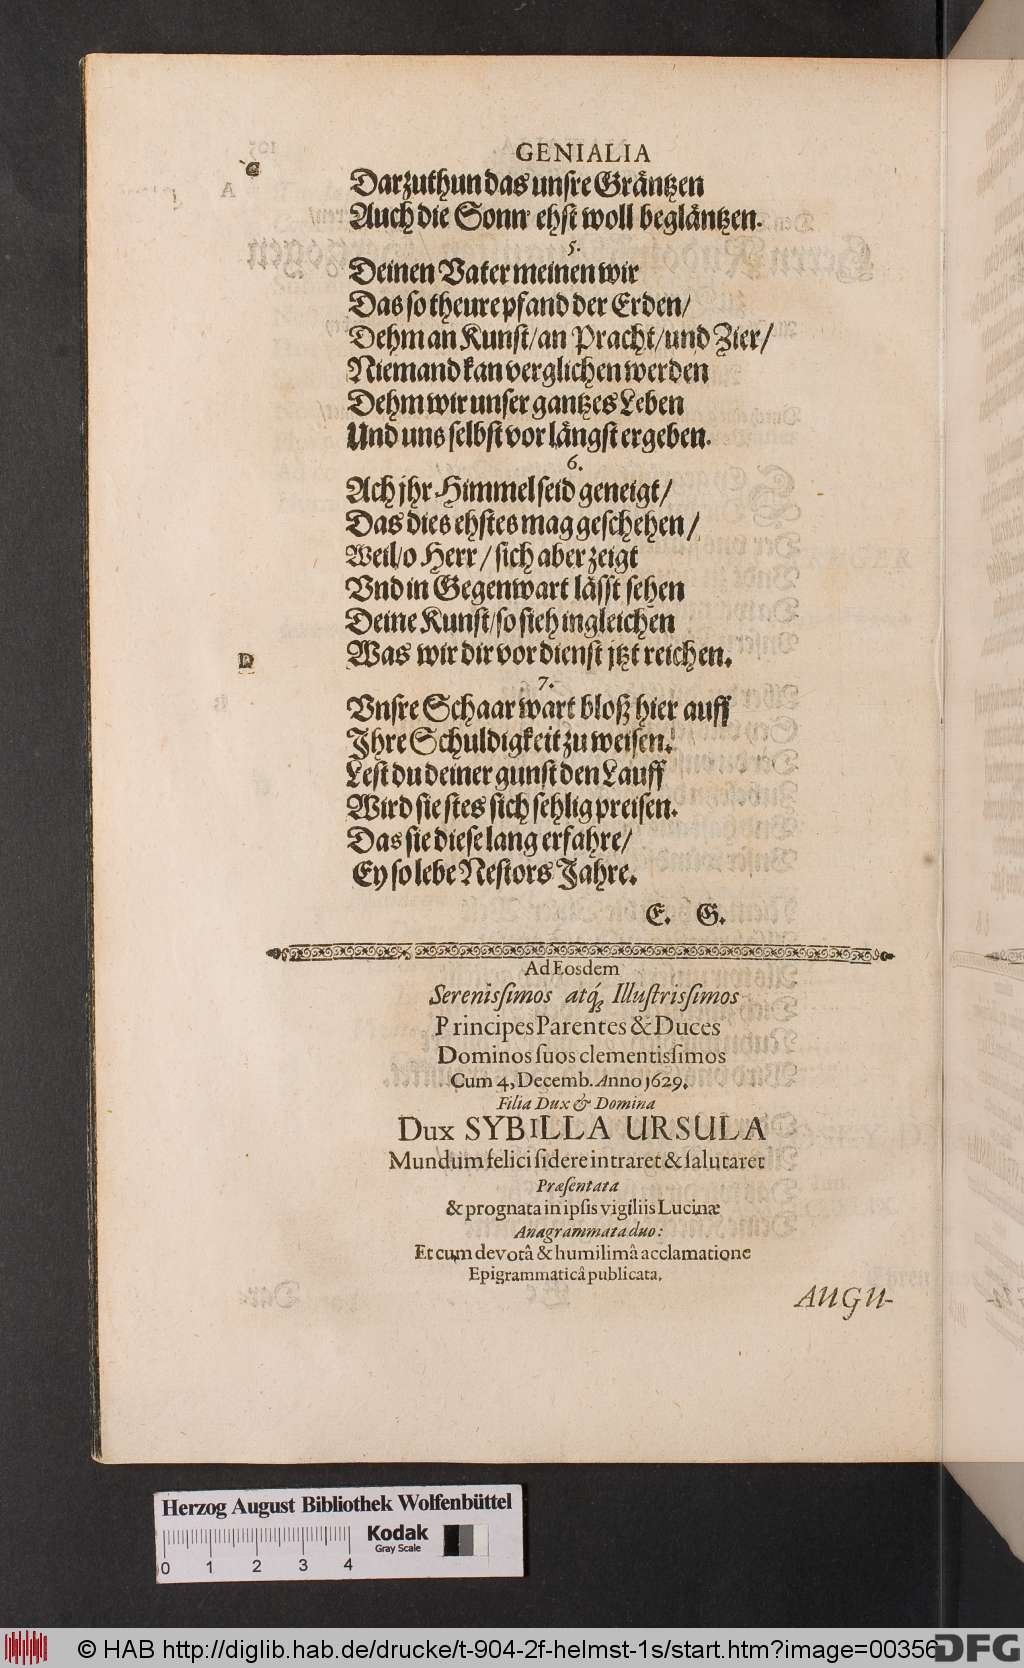 GENIALIA
C
Darzuthun das unsre Gräntzen
Auch die Sonn' ehst woll begläntzen.
5.
Deinen Vater meinen wir
Das so theure pfand der Erden/
Dehm an Kunst/an Pracht/und Zier/
Niemand kan verglichen werden
Dehm wir unser gantzes Leben
Und uns selbst vor längst ergeben.
6.
Ach jhr Himmel seid geneigt/
Das dies ehstes mag geschehen/
Weil/o Herr/ sich aber zeigt
Vnd in Gegenwart lässt sehen
Deine Kunst/so sieh ingleichen
D
Was wir dir vor dienst jtzt reichen.
7.
Vnsre Schaar wart bloß hier auff
Jhre Schuldigkeit zu weisen.
Lest du deiner gunst den Lauff
Wird sie stes sich sehlig preisen.
Das sie diese lang erfahre/
Ey so lebe Nestors Jahre.
E. G.
Ad Eosdem
Serenissimos atq́; Illustrissimos
Principes Parentes & Duces
Dominos suos clementissimos
Cum 4, Decemb. Anno 1629.
Filia Dux & Domina
Dux SYBILLA URSULA
Mundum felici sidere intraret & salutaret
Præsentata
& prognata in ipsis vigiliis Lucinæ
Anagrammata duo:
Et cum devotâ & humilimâ acclamatione
Epigrammaticâ publicata.
AUGU-
Herzog August Bibliothek Wolfenbüttel
Kodak
Gray Scale
0 1 2 3 4
© HAB http://diglib.hab.de/drucke/t-904-2f-helmst-1s/start.htm?image=00356
DFG